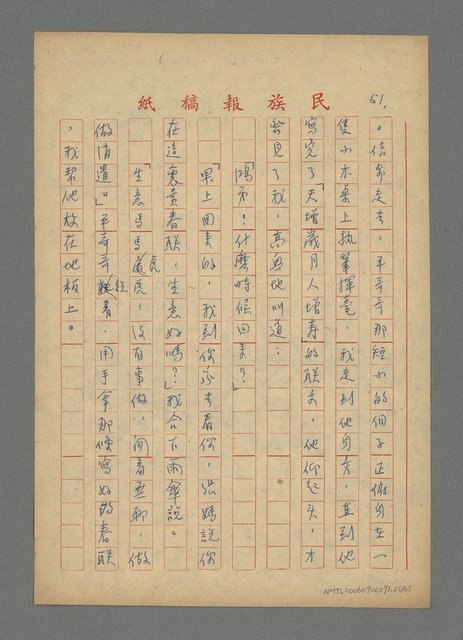 民族報稿紙
51,
。信步走去，平哥哥那短小的個子正俯身在一
隻小木桌上執筆揮毫，我走到他身旁，直到他
寫完了「天增歲月人增壽」的聯文，他仰起頭，才
發見了我，高興地叫道：
「鴻弟！什麼時候回來？」
「早上回來的，我到你家去看你，張媽說你
在這裏賣春聯，生意好嗎？」我合下雨傘說。
「生意馬馬虎虎，沒有事做，閒着無聊，做
做消遣。」平哥哥說着，用手拿那條寫好的春聯
，我幫他放在地板上。
NMTL20060900071.51/65